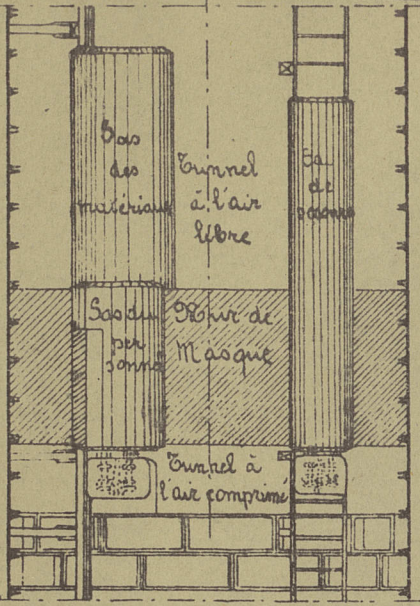 Sas
des
matériaux
Tunnel
à l'air
libre
Sas
de
secours
Sas du
per
sonnel
Mur de
Masque
Tunnel à
l'air comprimé